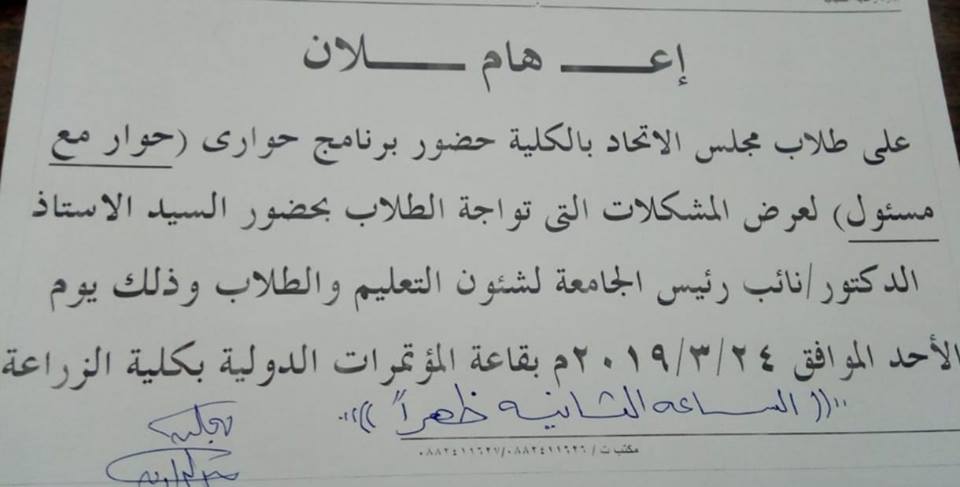 إعـــــ هام ـــــلان
على طلاب مجلس الاتحاد بالكلية حضور برنامج حوارى (حوار مع
مسئول) لعرض المشكلات التى تواجة الطلاب بحضور السيد الاستاذ
الدكتور/نائب رئيس الجامعة لشئون التعليم والطلاب وذلك يوم
الأحد الموافق ٢٠١٩/٣/٢٤م بقاعة المؤتمرات الدولية بكلية الزراعة
((الساعه الثانيه ظهراً))
مكتب ت / ٠٨٨٢٤١١٦٢٧/٠٨٨٢٤١١٦٢٦